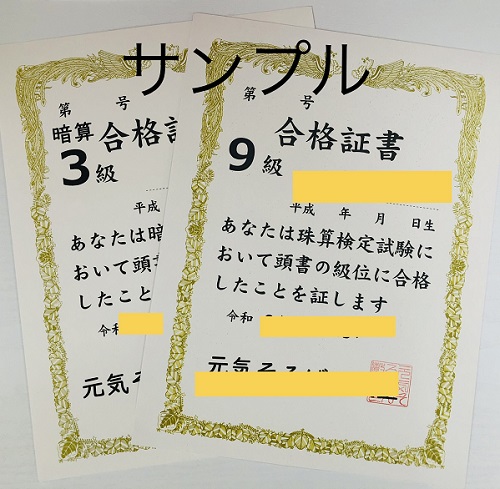 サンプル
第 号
暗算 合格証
3級
平成
あなたは暗
おいて頭書
したこと
令和
元気そ
第 号
合格証書
9級
平成 年 月 日生
あなたは珠算検定試験に
おいて頭書の級位に合格
したことを証します
令和
元気そろば